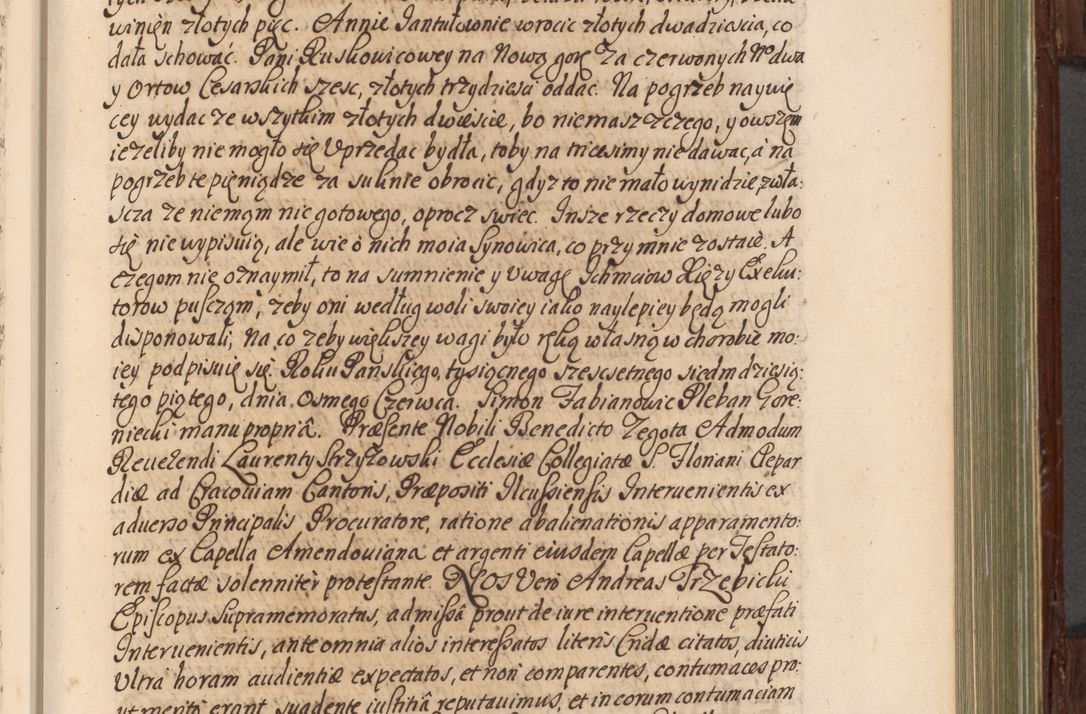 winięn złotych pięc. Annie Jantułownie wrocic złotych dwadziescia, co
dała schować. Pani Ruskowicowey na Nową gorę za czerwonych Nº dwa
y Ortow Cesarskich szesc, złotych trzydziesci oddac. Na pogrzeb naywię
cey wydac ze wszytkim złotych dwieście, bo nie masz z czego, y owszem
iezeliby nie mogło się Uprzedac bydła, toby na tricesimy nie dawac, a na
pogrzeb te pieniądze za suknie obrocic, gdyz to nie mało wynidzie, zwła:
scza ze niemąm nic gotowego, oprocz swiec. Insze rzeczy domowe lubo
się nie wypisuią, ale wie o nich moia Synowica, co przy mnie zostaie. A
czegom nie oznaymił, to na sumnienie y Uwagę Ichmciow Xięzy Exeku:
torow puscząm, zeby oni według woli swoiey iako naylepiey będą mogli
disponowali, na co zeby większey wagi było ręką własną w chorobie mo:
iey podpisuię się. Roku Panskiego, tysiącnego szescsetnego siedmdziesią:
tego piątego, dnia osmego Czerwca. Simon Fabianowic Pleban Gore:
niecki manu propriâ. Præsente Nobili Benedicto Zegota Admodum
Reuerendi Laurenty Strzyszowski Ecclesiæ Collegiatæ S. Floriani Clepar
diæ ad Cracouiam Cantoris, Præpositi Ilcussiensis Interuenientis ex
aduerso Principalis Procuratore, ratione abalienationis apparamento:
rum ex Capella Amendouiana et argenti eiusdem Capellæ per Testato:
rem factæ solenniter protestante. NOS Vero Andreas Trzebicki
Episcopus Supramemoratus, admissâ prout de iure interuentione præfati
Interuenientis, ante omnia alios interessatos literis Cridæ citatos, diutius
Ultra horam audientiæ expectatos, et non comparentes, contumaces pro:
ut merito erant, suadente iustitiâ reputauimus, et in eorum contumaciam